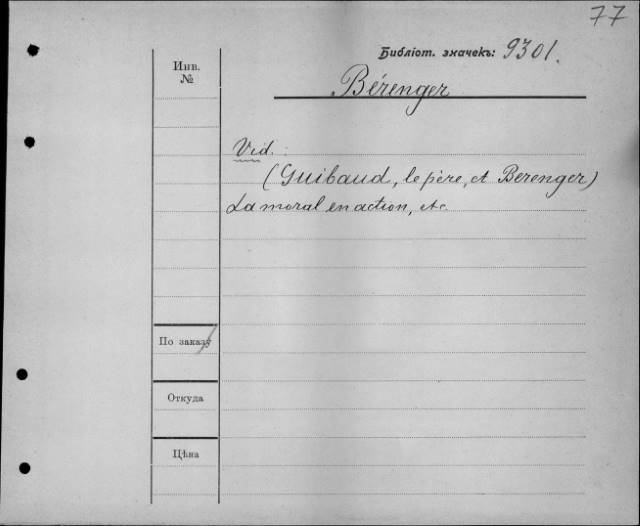 77
Библіот. значекъ: 9301.
Инв.
№
Bérenger
Vid. :
(Guibaud, le père, et Berenger)
La moral en action, etc
По заказу
Откуда
Цѣна